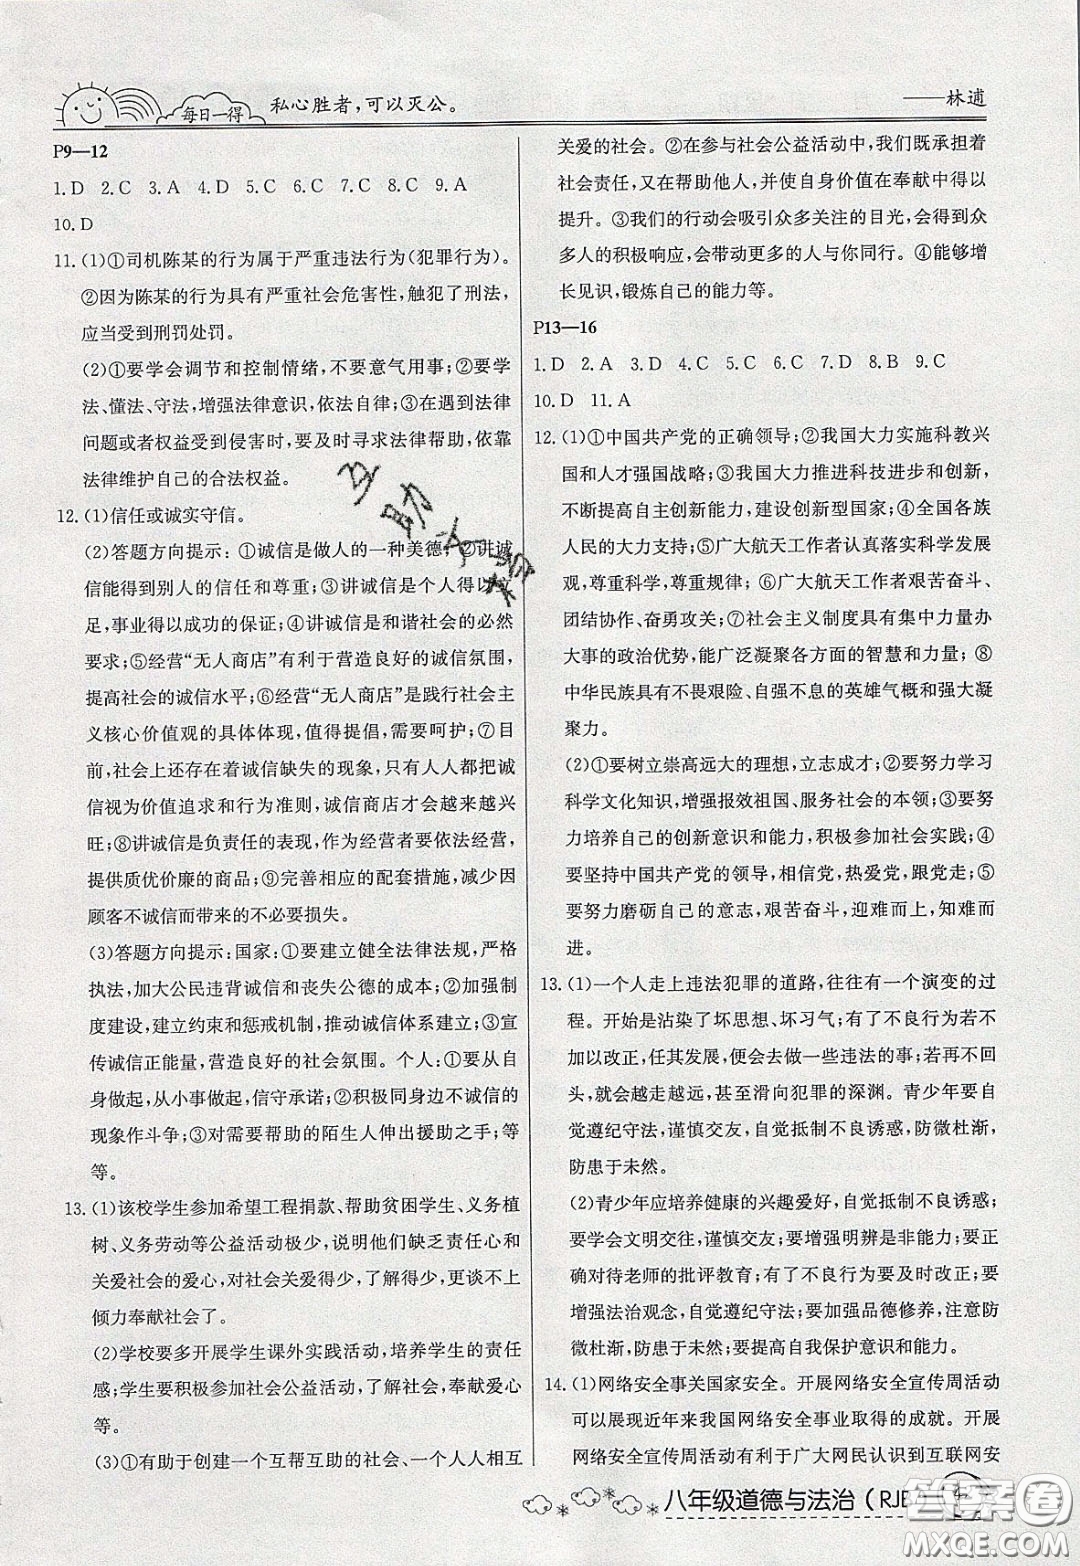 每日一得
私心胜者,可以灭公。
——林逋
P9—12
1. D 2. C 3. A 4. D 5. C 6. C 7. C 8. C 9. A
10. D
11. (1)①司机陈某的行为属于严重违法行为(犯罪行为)。
②因为陈某的行为具有严重社会危害性,触犯了刑法,
应当受到刑罚处罚。
(2)①要学会调节和控制情绪,不要意气用事;②要学
法、懂法、守法,增强法律意识,依法自律;③在遇到法律
问题或者权益受到侵害时,要及时寻求法律帮助,依靠
法律维护自己的合法权益。
12. (1)信任或诚实守信。
(2)答题方向提示:①诚信是做人的一种美德;②讲诚
信能得到别人的信任和尊重;③讲诚信是个人得以立
足,事业得以成功的保证;④讲诚信是和谐社会的必然
要求;⑤经营“无人商店”有利于营造良好的诚信氛围,
提高社会的诚信水平;⑥经营“无人商店”是践行社会主
义核心价值观的具体体现,值得提倡,需要呵护;⑦目
前,社会上还存在着诚信缺失的现象,只有人人都把诚
信视为价值追求和行为准则,诚信商店才会越来越兴
旺;⑧讲诚信是负责任的表现,作为经营者要依法经营,
提供质优价廉的商品;⑨完善相应的配套措施,减少因
顾客不诚信而带来的不必要损失。
(3)答题方向提示:国家:①要建立健全法律法规,严格
执法,加大公民违背诚信和丧失公德的成本;②加强制
度建设,建立约束和惩戒机制,推动诚信体系建立;③宣
传诚信正能量,营造良好的社会氛围。个人:①要从自
身做起,从小事做起,信守承诺;②积极同身边不诚信的
现象作斗争;③对需要帮助的陌生人伸出援助之手;等
等。
13. (1)该校学生参加希望工程捐款、帮助贫困学生、义务植
树、义务劳动等公益活动极少,说明他们缺乏责任心和
关爱社会的爱心,对社会关爱得少,了解得少,更谈不上
倾力奉献社会了。
(2)学校要多开展学生课外实践活动,培养学生的责任
感;学生要积极参加社会公益活动,关爱社会,奉献爱心
等。
(3)①有助于创建一个互帮互助的社会,一个人人相互
关爱的社会。②在参与社会公益活动中,我们既承担着
社会责任,又在帮助他人,并使自身价值在奉献中得以
提升。③我们的行动会吸引众多关注的目光,会得到众
多人的积极响应,会带动更多的人与你同行。④能够增
长见识,锻炼自己的能力等。
P13—16
1. D 2. A 3. C 4. C 5. C 6. C 7. D 8. B 9. C
10. D 11. A
12. (1)①中国共产党的正确领导;②我国大力实施科教兴
国和人才强国战略;③我国大力推进科技进步和创新,
不断提高自主创新能力,建设创新型国家;④全国各族
人民的大力支持;⑤广大航天工作者认真落实科学发展
观,尊重科学,尊重规律;⑥广大航天工作者艰苦奋斗、
团结协作、奋勇攻关;⑦社会主义制度具有集中力量办
大事的政治优势,能广泛凝聚各方面的智慧和力量;⑧
中华民族具有不畏艰险、自强不息的英雄气概和强大凝
聚力。
(2)①要树立崇高远大的理想,立志成才;②要努力学习
科学文化知识,增强报效祖国、服务社会的本领;③要努
力培养自己的创新意识和能力,积极参加社会实践;④
要坚持中国共产党的领导,相信党,热爱党,跟党走;⑤
要努力磨砺自己的意志,艰苦奋斗,迎难而上,知难而
进。
13. (1)一个人走上违法犯罪的道路,往往有一个演变的过
程。开始是沾染了坏思想、坏习气;有了不良行为若不
加以改正,便会去做一些违法的事;若再不回
头,就会越走越远,甚至滑向犯罪的深渊。青少年要自
觉遵纪守法,谨慎交友,自觉抵制不良诱惑,防微杜渐,
防患于未然。
(2)青少年应培养健康的兴趣爱好,自觉抵制不良诱惑;
要学会文明交往,谨慎交友;要增强明辨是非的能力;要
正确对待老师的批评教育;有了不良行为要及时改正;要
增强法治观念,自觉遵纪守法;要加强品德修养,注意防
微杜渐,防患于未然;要提高自我保护意识和能力。
14. (1)网络安全事关国家安全。开展网络安全宣传周活动
可以展现近年来我国网络安全事业取得的成就。开展
网络安全宣传周活动有利于广大网民认识到互联网安
八年级道德与法治(RJB)
答案卷
MXQE.COM